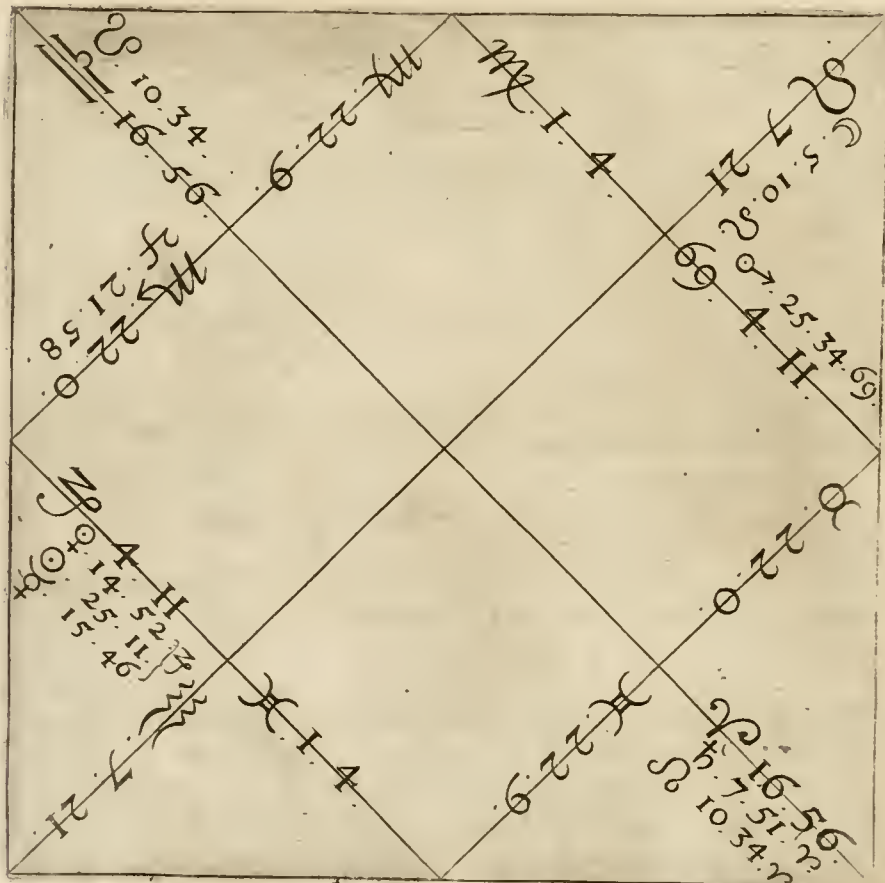 ☋. 10. 34.
♎. 16. 56
♍. 22. 9.
♍. 1. 4.
♌ 7 21
☽. 5. 10. ♌
♋ 4. 11.
♂. 25. 34. ♋.
♃. 21. 58
♏. 22. 0
♉. 22. 0.
♑. 4. 11
♀. 14. 52
☉ 25. 11. ♑
☿ 15. 46
♒. 7. 21
♓. 1. 4.
♓. 22. 9.
♈. 16. 56.
♄. 7. 51. ♈.
☊ 10. 34. ♈